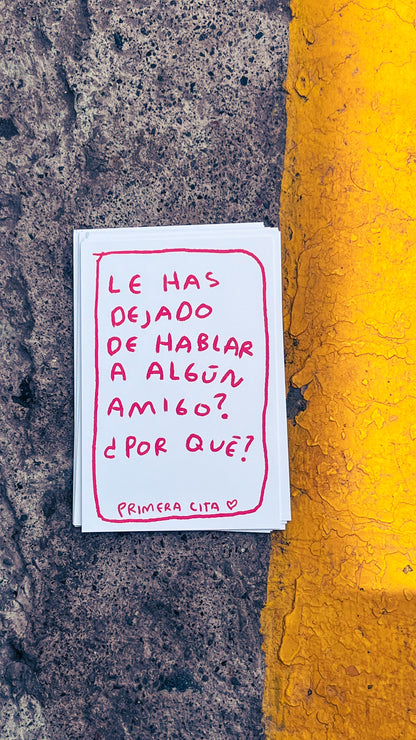 LE HAS
DEJADO
DE HABLAR
A ALGÚN
AMIGO?
¿POR QUÉ?
PRIMERA CITA ♡